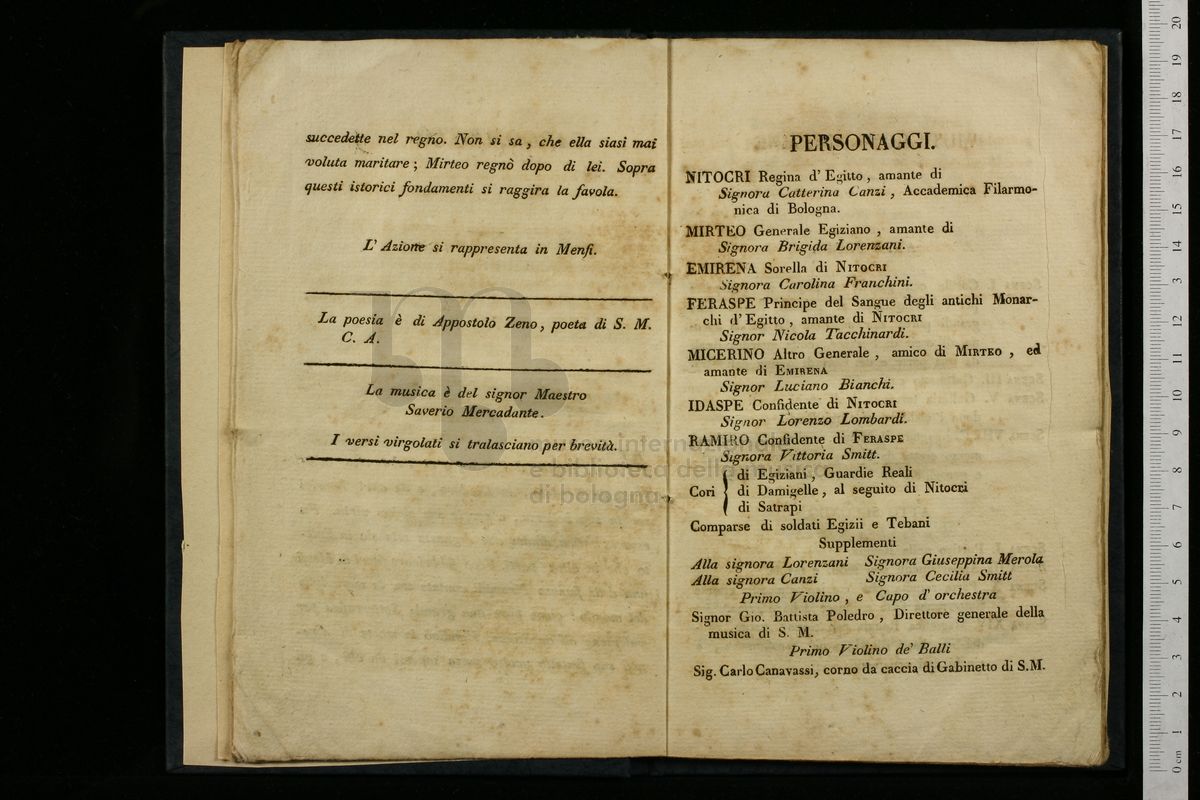 succedette nel regno. Non si sa, che ella siasi mai
voluta maritare; Mirteo regnò dopo di lei. Sopra
questi istorici fondamenti si raggira la favola.
L' Azione si rappresenta in Menfi.
La poesia è di Appostolo Zeno, poeta di S. M.
C. A.
La musica è del signor Maestro
Saverio Mercadante.
I versi virgolati si tralasciano per brevità.
PERSONAGGI.
NITOCRI Regina d' Egitto, amante di
Signora Catterina Canzi, Accademica Filarmo-
nica di Bologna.
MIRTEO Generale Egiziano, amante di
Signora Brigida Lorenzani.
EMIRENA Sorella di NITOCRI
Signora Carolina Franchini.
FERASPE Principe del Sangue degli antichi Monar-
chi d' Egitto, amante di NITOCRI
Signor Nicola Tacchinardi.
MICERINO Altro Generale, amico di MIRTEO, ed
amante di EMIRENA
Signor Luciano Bianchi.
IDASPE Confidente di NITOCRI
Signor Lorenzo Lombardi.
RAMIRO Confidente di FERASPE
Signora Vittoria Smitt.
di Egiziani, Guardie Reali
Cori { di Damigelle, al seguito di Nitocri
di Satrapi
Comparse di soldati Egizii e Tebani
Supplementi
Alla signora Lorenzani Signora Giuseppina Merola
Alla signora Canzi Signora Cecilia Smitt
Primo Violino, e Capo d' orchestra
Signor Gio. Battista Poledro, Direttore generale della
musica di S. M.
Primo Violino de' Balli
Sig. Carlo Canavassi, corno da caccia di Gabinetto di S.M.
e biblioteca della musica
di bologna
0 cm 1 2 3 4 5 6 7 8 9 10 11 12 13 14 15 16 17 18 19 20